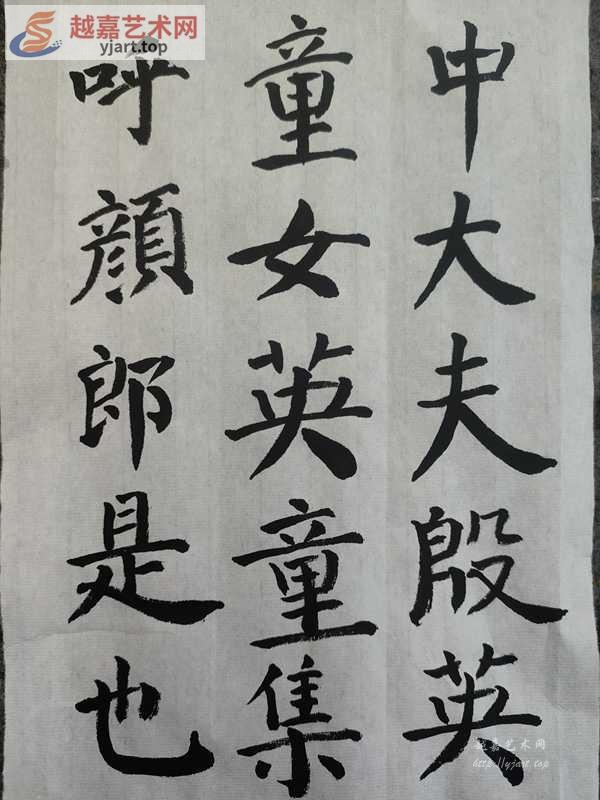 越嘉艺术网
yjart.top
中大夫殷英
童女英童集
呼颜郎是也
越嘉艺术网
http://yjart.top